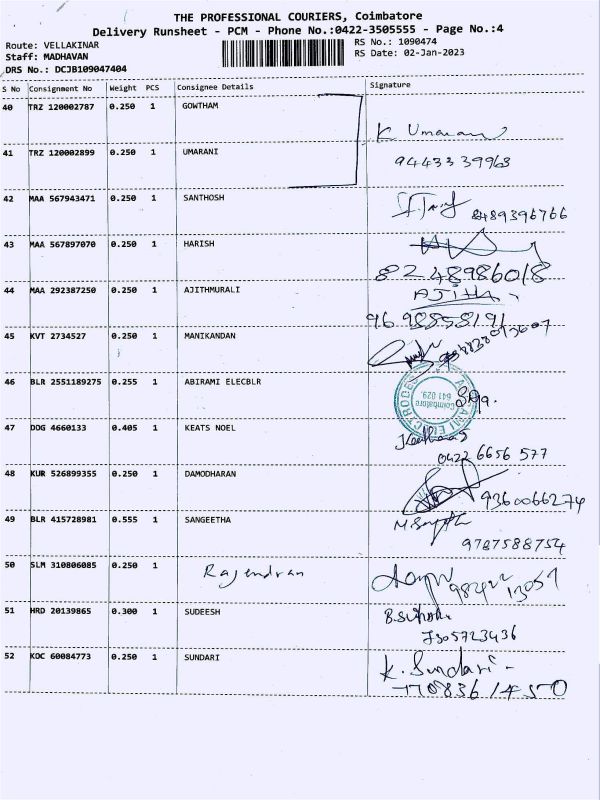 THE PROFESSIONAL COURIERS, Coimbatore
Delivery Runsheet - PCM - Phone No.:0422-3505555 - Page No.:4
Route: VELLAKINAR
RS No.: 1090474
Staff: MADHAVAN
RS Date: 02-Jan-2023
DRS No.: DCJB109047404
S No Consignment No Weight PCS Consignee Details Signature
40 TRZ 120002787 0.250 1 GOWTHAM
K Umarani
41 TRZ 120002899 0.250 1 UMARANI
9443339963
42 MAA 567943471 0.250 1 SANTHOSH
8489396766
43 MAA 567897070 0.250 1 HARISH
8248986018
44 MAA 292387250 0.250 1 AJITHMURALI
AJith
9698858191
45 KVT 2734527 0.250 1 MANIKANDAN
46 BLR 2551189275 0.255 1 ABIRAMI ELECBLR
Coimbatore
641 029.
47 DDG 4660133 0.405 1 KEATS NOEL
0422 6656 577
48 KUR 526899355 0.250 1 DAMODHARAN
9360066274
49 BLR 415728981 0.555 1 SANGEETHA
9787588754
50 SLM 310806085 0.250 1 Rajendran
51 HRD 20139865 0.300 1 SUDEESH
7305723436
52 KOC 60084773 0.250 1 SUNDARI
K. Sundari